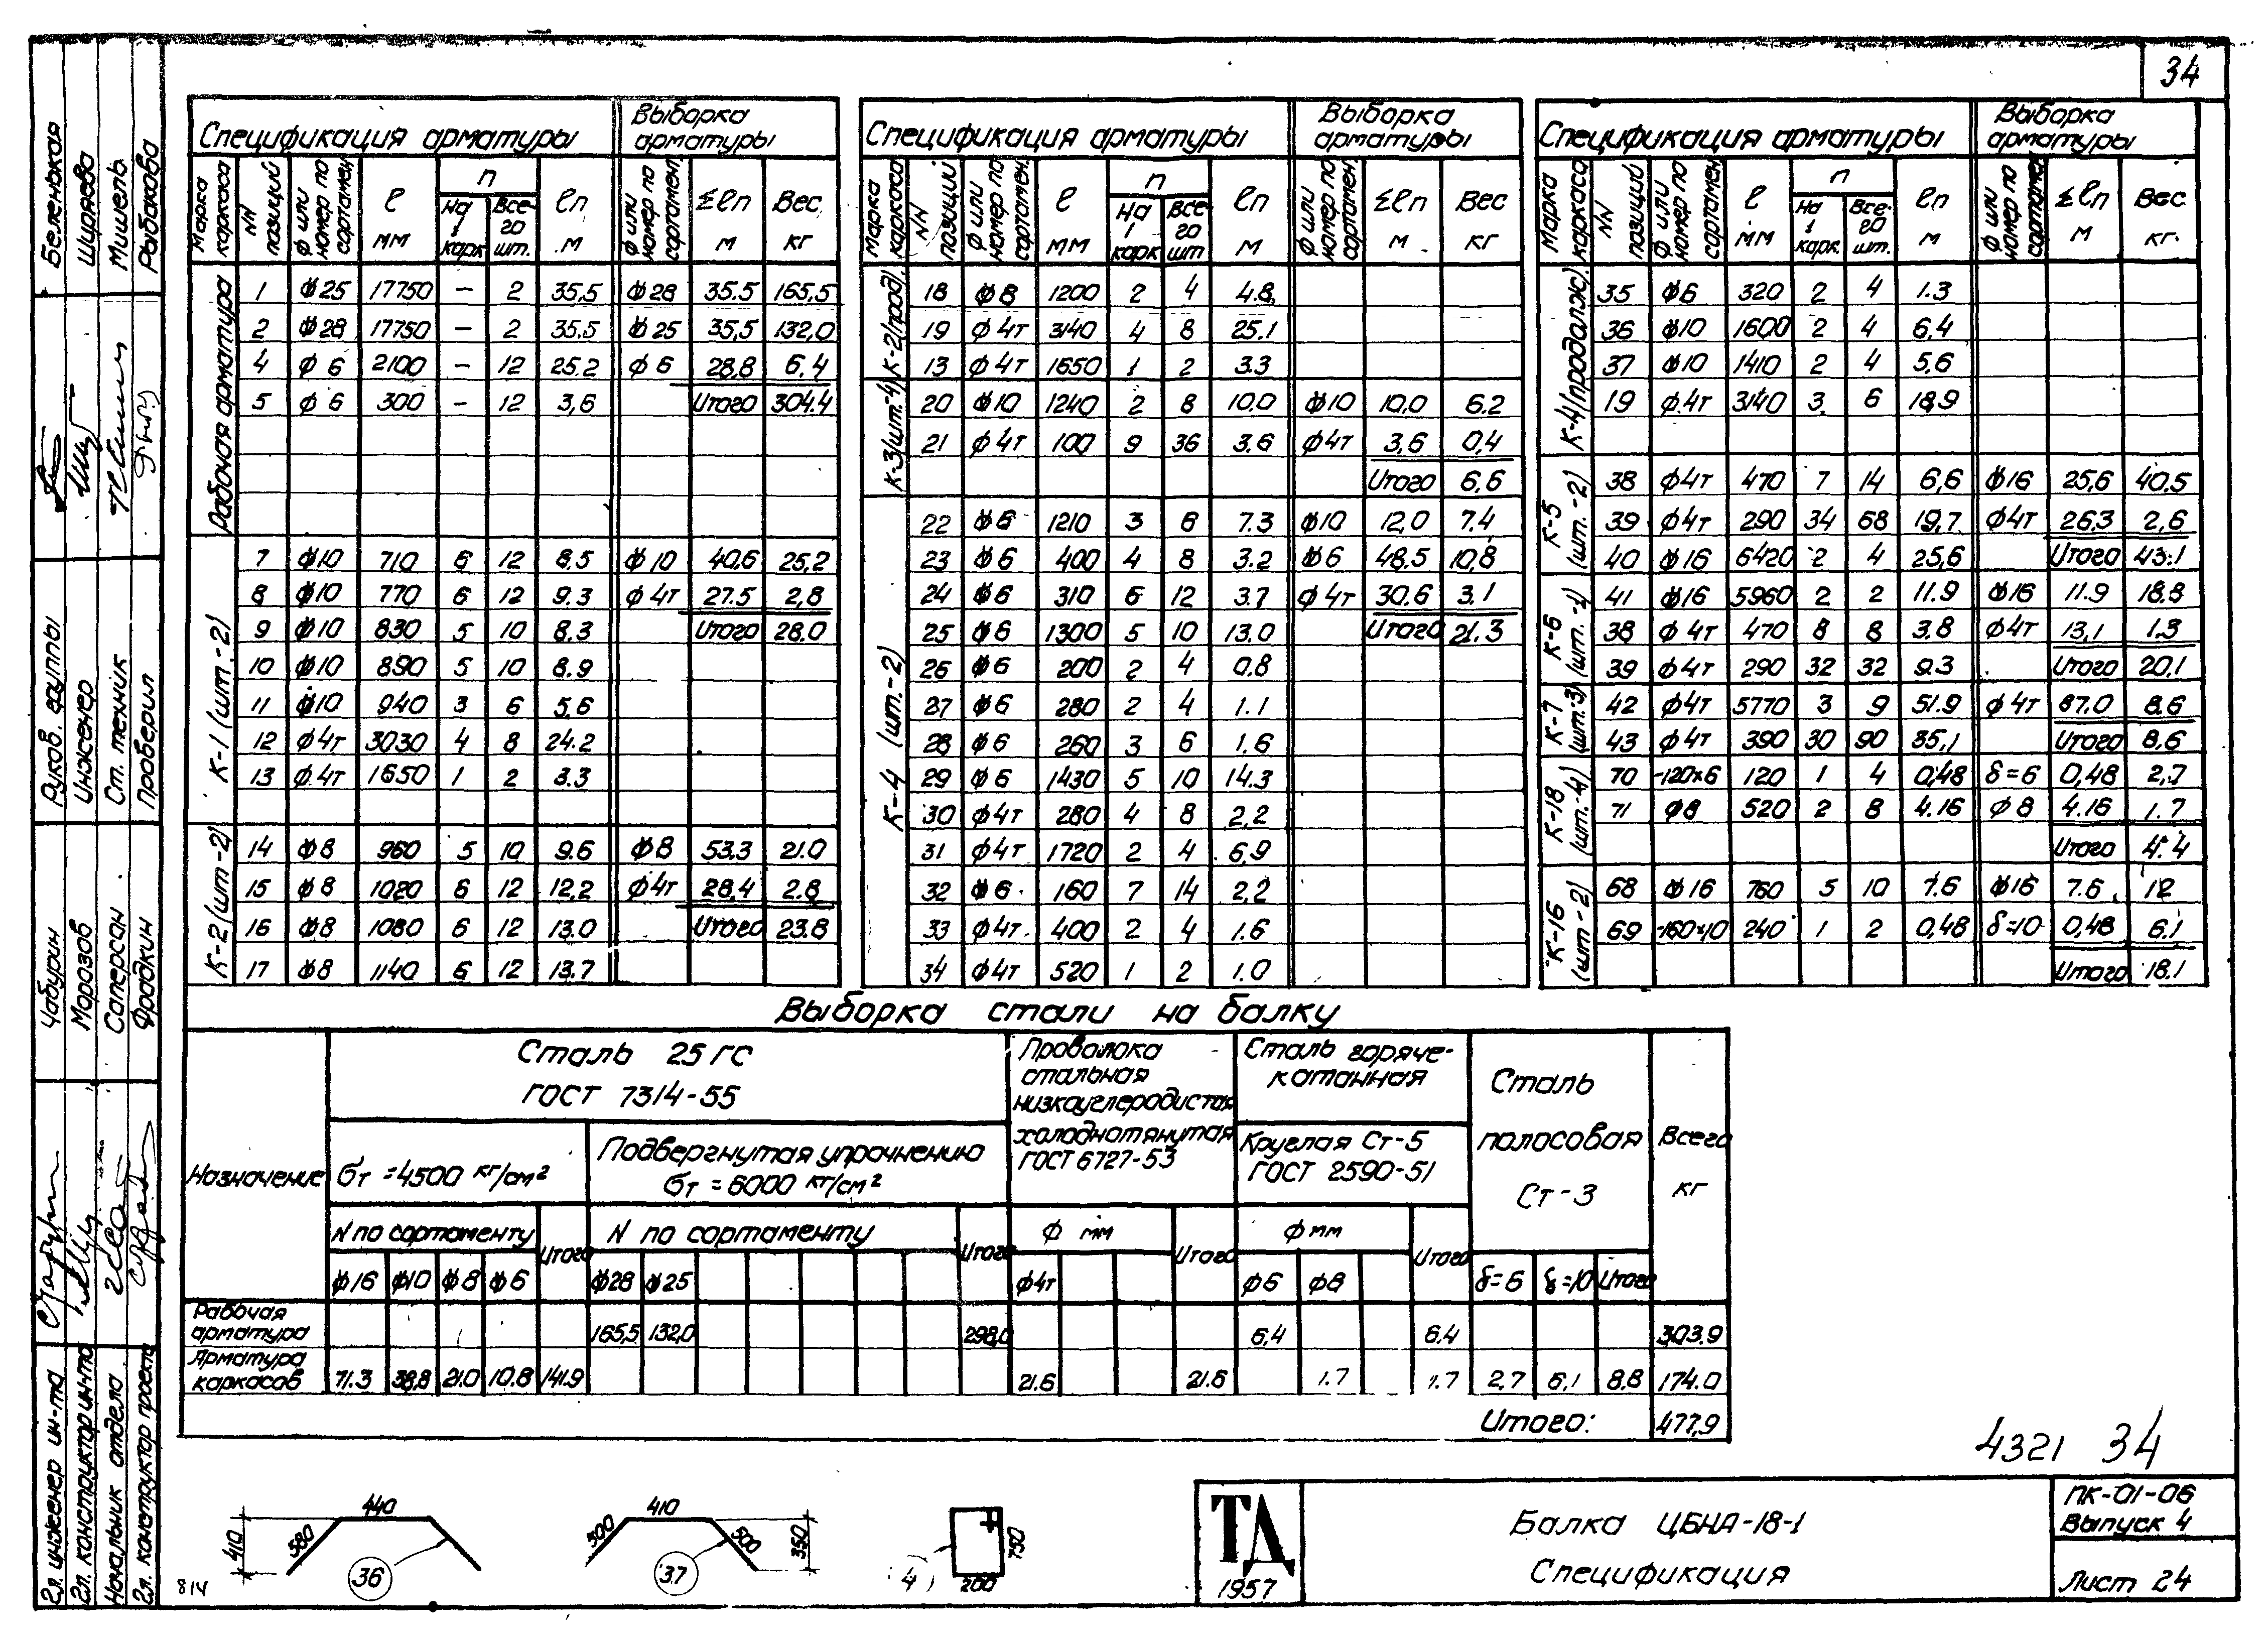 34
Спецификация арматуры Выборка арматуры
Марка каркаса NN позиций Ф или номер по сортамен. ℓ мм п На 1 карк Все-го шт. ℓп м Ф или номер по сортамент. Σℓп м Вес кг
Рабочая арматура
1 ф25 17750 – 2 35,5 ф28 35.5 165,5
2 ф28 17750 – 2 35,5 ф25 35,5 132,0
4 ф6 2100 – 12 25.2 ф6 28,8 6.4
5 ф6 300 – 12 3,6 Итого 304.4
К-1 (шт.-2)
7 ф10 710 6 12 8.5 ф10 40,6 25,2
8 ф10 770 6 12 9.3 ф4т 27.5 2,8
9 ф10 830 5 10 8.3 Итого 28.0
10 ф10 890 5 10 8.9
11 ф10 940 3 6 5,6
12 ф4т 3030 4 8 24.2
13 ф4т 1650 1 2 3.3
К-2 (шт-2)
14 ф8 960 5 10 9.6 ф8 53.3 21.0
15 ф8 1020 6 12 12,2 ф4т 28,4 2.8
16 ф8 1080 6 12 13.0 Итого 23.8
17 ф8 1140 6 12 13.7
Спецификация арматуры Выборка арматуры
Марка каркаса NN позиций Ф или номер по сортамен. ℓ мм п На 1 карк Все-го шт ℓп м Ф или номер по сортамент. Σℓп м Вес кг
К-2 (прод).
18 ф8 1200 2 4 4.8
19 ф4т 3140 4 8 25.1
13 ф4т 1650 1 2 3.3
К-3 (шт-4)
20 ф10 1240 2 8 10.0 ф10 10,0 6.2
21 ф4т 100 9 36 3.6 ф4т 3,6 0,4
Итого 6,6
К-4 (шт.-2)
22 ф6 1210 3 6 7.3 ф10 12,0 7.4
23 ф6 400 4 8 3.2 ф6 48.5 10,8
24 ф6 310 6 12 3.7 ф4т 30.6 3.1
25 ф6 1300 5 10 13.0 Итого 21.3
26 ф6 200 2 4 0.8
27 ф6 280 2 4 1.1
28 ф6 260 3 6 1.6
29 ф6 1430 5 10 14.3
30 ф4т 280 4 8 2,2
31 ф4т 1720 2 4 6,9
32 ф6 160 7 14 2,2
33 ф4т 400 2 4 1.6
34 ф4т 520 1 2 1.0
Спецификация арматуры Выборка арматуры
Марка каркаса NN позиций Ф или номер по сортамен ℓ мм п На 1 карк. Все-го шт. ℓп м Ф или номер по сортамен Σℓп м Вес кг.
К-4 (продолж).
35 ф6 320 2 4 1.3
36 ф10 1600 2 4 6,4
37 ф10 1410 2 4 5,6
19 ф4т 3140 3 6 18,9
К-5 (шт.-2)
38 ф4т 470 7 14 6,6 ф16 25,6 40.5
39 ф4т 290 34 68 19,7 ф4т 26.3 2,6
40 ф16 6420 2 4 25,6 Итого 43.1
К-6 (шт.-1)
41 ф16 5960 2 2 11.9 ф16 11.9 18.8
38 ф4т 470 8 8 3.8 ф4т 13,1 1.3
39 ф4т 290 32 32 9.3 Итого 20,1
К-7 (шт:3)
42 ф4т 5770 3 9 51.9 ф4т 87.0 8.6
43 ф4т 390 30 90 35,1 Итого 8,6
К-18 (шт.-4)
70 -120×6 120 1 4 0,48 δ=6 0,48 2,7
71 ф8 520 2 8 4.16 ф8 4.16 1.7
Итого 4.4
К-16 (шт-2)
68 ф16 760 5 10 7.6 ф16 7.6 12
69 -160×10 240 1 2 0,48 δ=10 0,48 6.1
Итого 18.1
Выборка стали на балку
Назначение Сталь 25ГС ГОСТ 7314-55 Проволока стальная низкоуглеродистая холоднотянутая ГОСТ 6727-53 Сталь горяче-катанная Круглая Ст-5 ГОСТ 2590-51 Сталь полосовая Ст-3 Всего кг
σт =4500 кг/см² Подвергнутая упрочнению σт =6000 кг/см²
N по сортаменту Итого N по сортаменту Итого ф мм Итого ф мм Итого
ф16 ф10 ф8 ф6 ф28 ф25 ф4т ф6 ф8 δ=6 δ=10 Итого
Рабочая арматура 165,5 132,0 298,0 6,4 6.4 303.9
Арматура каркасов 71.3 38,8 21.0 10.8 141.9 21.6 21.6 1.7 1.7 2,7 6,1 8,8 174.0
Итого: 477,9
4321 34
410 580 440 36
500 410 500 350 37
4 200 750
814
ТД
1957
Балка ЦБНА-18-1
Спецификация
ПК-01-06
Выпуск 4
Лист 24
Гл. инженер ин-та Чабурин
Гл. конструктор ин-та Морозов
Начальник отдела Саперсон
Гл. конструктор проекта Фрадкин
Руков. группы Беленькая
Инженер Ширяева
Ст. техник Мишель
Проверил Рыбакова